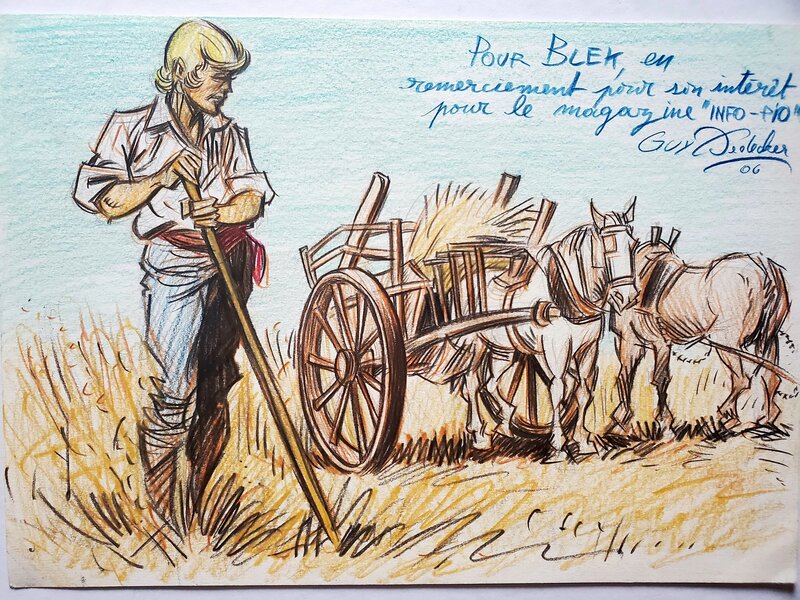 POUR BLEK, en
remerciement pour son intérêt
pour le magazine "INFO-PIO"
GUY
06